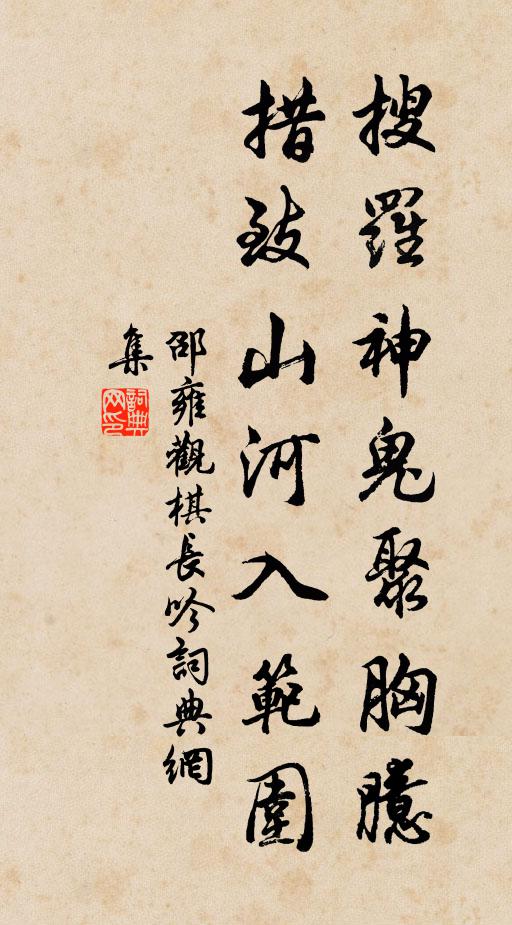 搜羅神鬼聚胸臆
措致山河入範圍
邵雍觀棋長吟詞典網
集
詞典网印